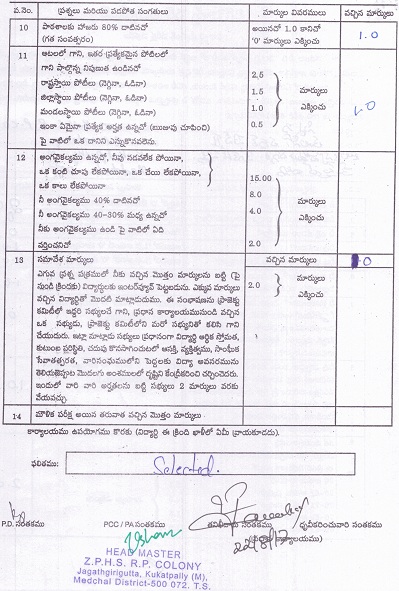 వ.నెం. ప్రశ్నలు మరియు సదరుపు సంగతులు మార్కుల వివరములు వచ్చిన మార్కులు
10 పాఠశాలకు హాజరు 80% దాటినచో అయినచో 1.0 కానిచో 1.0
(గత సంవత్సరం) '0' మార్కులు ఎక్కించు
11 ఆటలలో గాని, ఇతర ప్రత్యేకమైన పోటీలలో
గాని పాల్గొన్న నిపుణుత ఉండినచో
రాష్ట్రస్థాయి పోటీలు (నెగ్గినా, ఓడినా) 2.5
జిల్లాస్థాయి పోటీలు (నెగ్గినా, ఓడినా) 1.5 మార్కులు
మండలస్థాయి పోటీలు (నెగ్గినా, ఓడినా) 1.0 ఎక్కించు
ఇంకా ఏమైనా ప్రత్యేక అర్హత ఉన్నచో (ఋజువు చూపించి) 0.5
పై వాటిలో ఒక దానిని ఎన్నుకొనవలెను.
12 అంగవైకల్యము ఉన్నచో, నీవు నడవలేక పోయినా,
ఒక కంటి చూపు లేకపోయినా, ఒక చేయి లేకపోయినా, 15.00
ఒక కాలు లేకపోయినా 8.0 మార్కులు
నీ అంగవైకల్యము 40% దాటినచో 4.0 ఎక్కించు
నీ అంగవైకల్యము 40-30% మధ్య ఉన్నచో
నీకు అంగవైకల్యము ఉండి పై వాటిలో ఏది
వర్తించనిచో 2.0
13 సమావేశ మార్కులు వచ్చిన మార్కులు
ఎగువ ప్రశ్న పత్రములో నీకు వచ్చిన మొత్తం మార్కులను బట్టి (పై 2.0 మార్కులు
సుండి క్రిందకు) విద్యార్థులకు ఇంటర్వ్యూవ్ పెట్టబడును. ఎక్కువ మార్కులు ఎక్కించు
వచ్చిన విద్యార్థితో మొదటి మాట్లాడుదుము. ఈ సంభాషణను ప్రాజెక్టు
కమిటీలో ఇద్దరి సభ్యులచే గాని, ప్రధాన కార్యాలయమునుండి వచ్చిన
ఒక సభ్యుడు, ప్రాజెక్టు కమిటీలోని మరో సభ్యునితో కలిసి గాని
చేయుదురు. ఇట్లా మాట్లాడు సభ్యులు ప్రధానంగా విద్యార్థి ఆర్థిక స్తోమత,
కుటుంబ పరిస్థితి, చదువు కొనసాగించుటలో ఆసక్తి, వ్యక్తిత్వము, సాంఘీక
సేవాతత్పరత, వారిసంఘములోని పెద్దలకు విద్యా అవసరమును
తెలియజెప్పుట మొదలగు అంశములలో దృష్టిని కేంద్రీకరించి చర్చించెదరు.
ఇందులో వారి వారి అర్హతలను బట్టి సభ్యులు 2 మార్కులు వరకు
వేయవచ్చు.
14 మౌళిక పరీక్ష అయిన తరువాత వచ్చిన మొత్తం మార్కులు
కార్యాలయము ఉపయోగము కొరకు (విద్యార్థి ఈ క్రింది ఖాళీలో ఏమీ వ్రాయకూడదు).
ఫలితము: Selected.
P.D. సంతకము PCC / PA సంతకము సంతకము ధృవీకరించువారి సంతకము
HEAD MASTER
Z.P.H.S. R.P. COLONY
Jagathgirigutta, Kukatpally (M),
Medchal District-500 072. T.S.